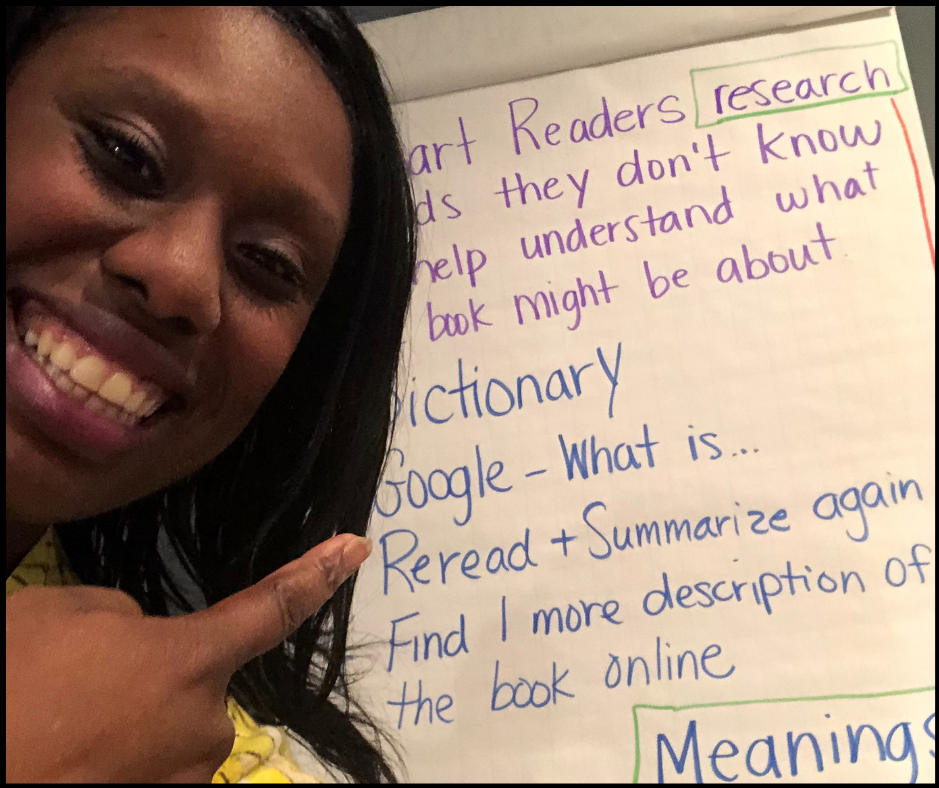 art Readers research
ds they don't know
help understand what
book might be about.
ictionary
Google - What is...
Reread + Summarize again
Find 1 more description of
the book online
Meanings